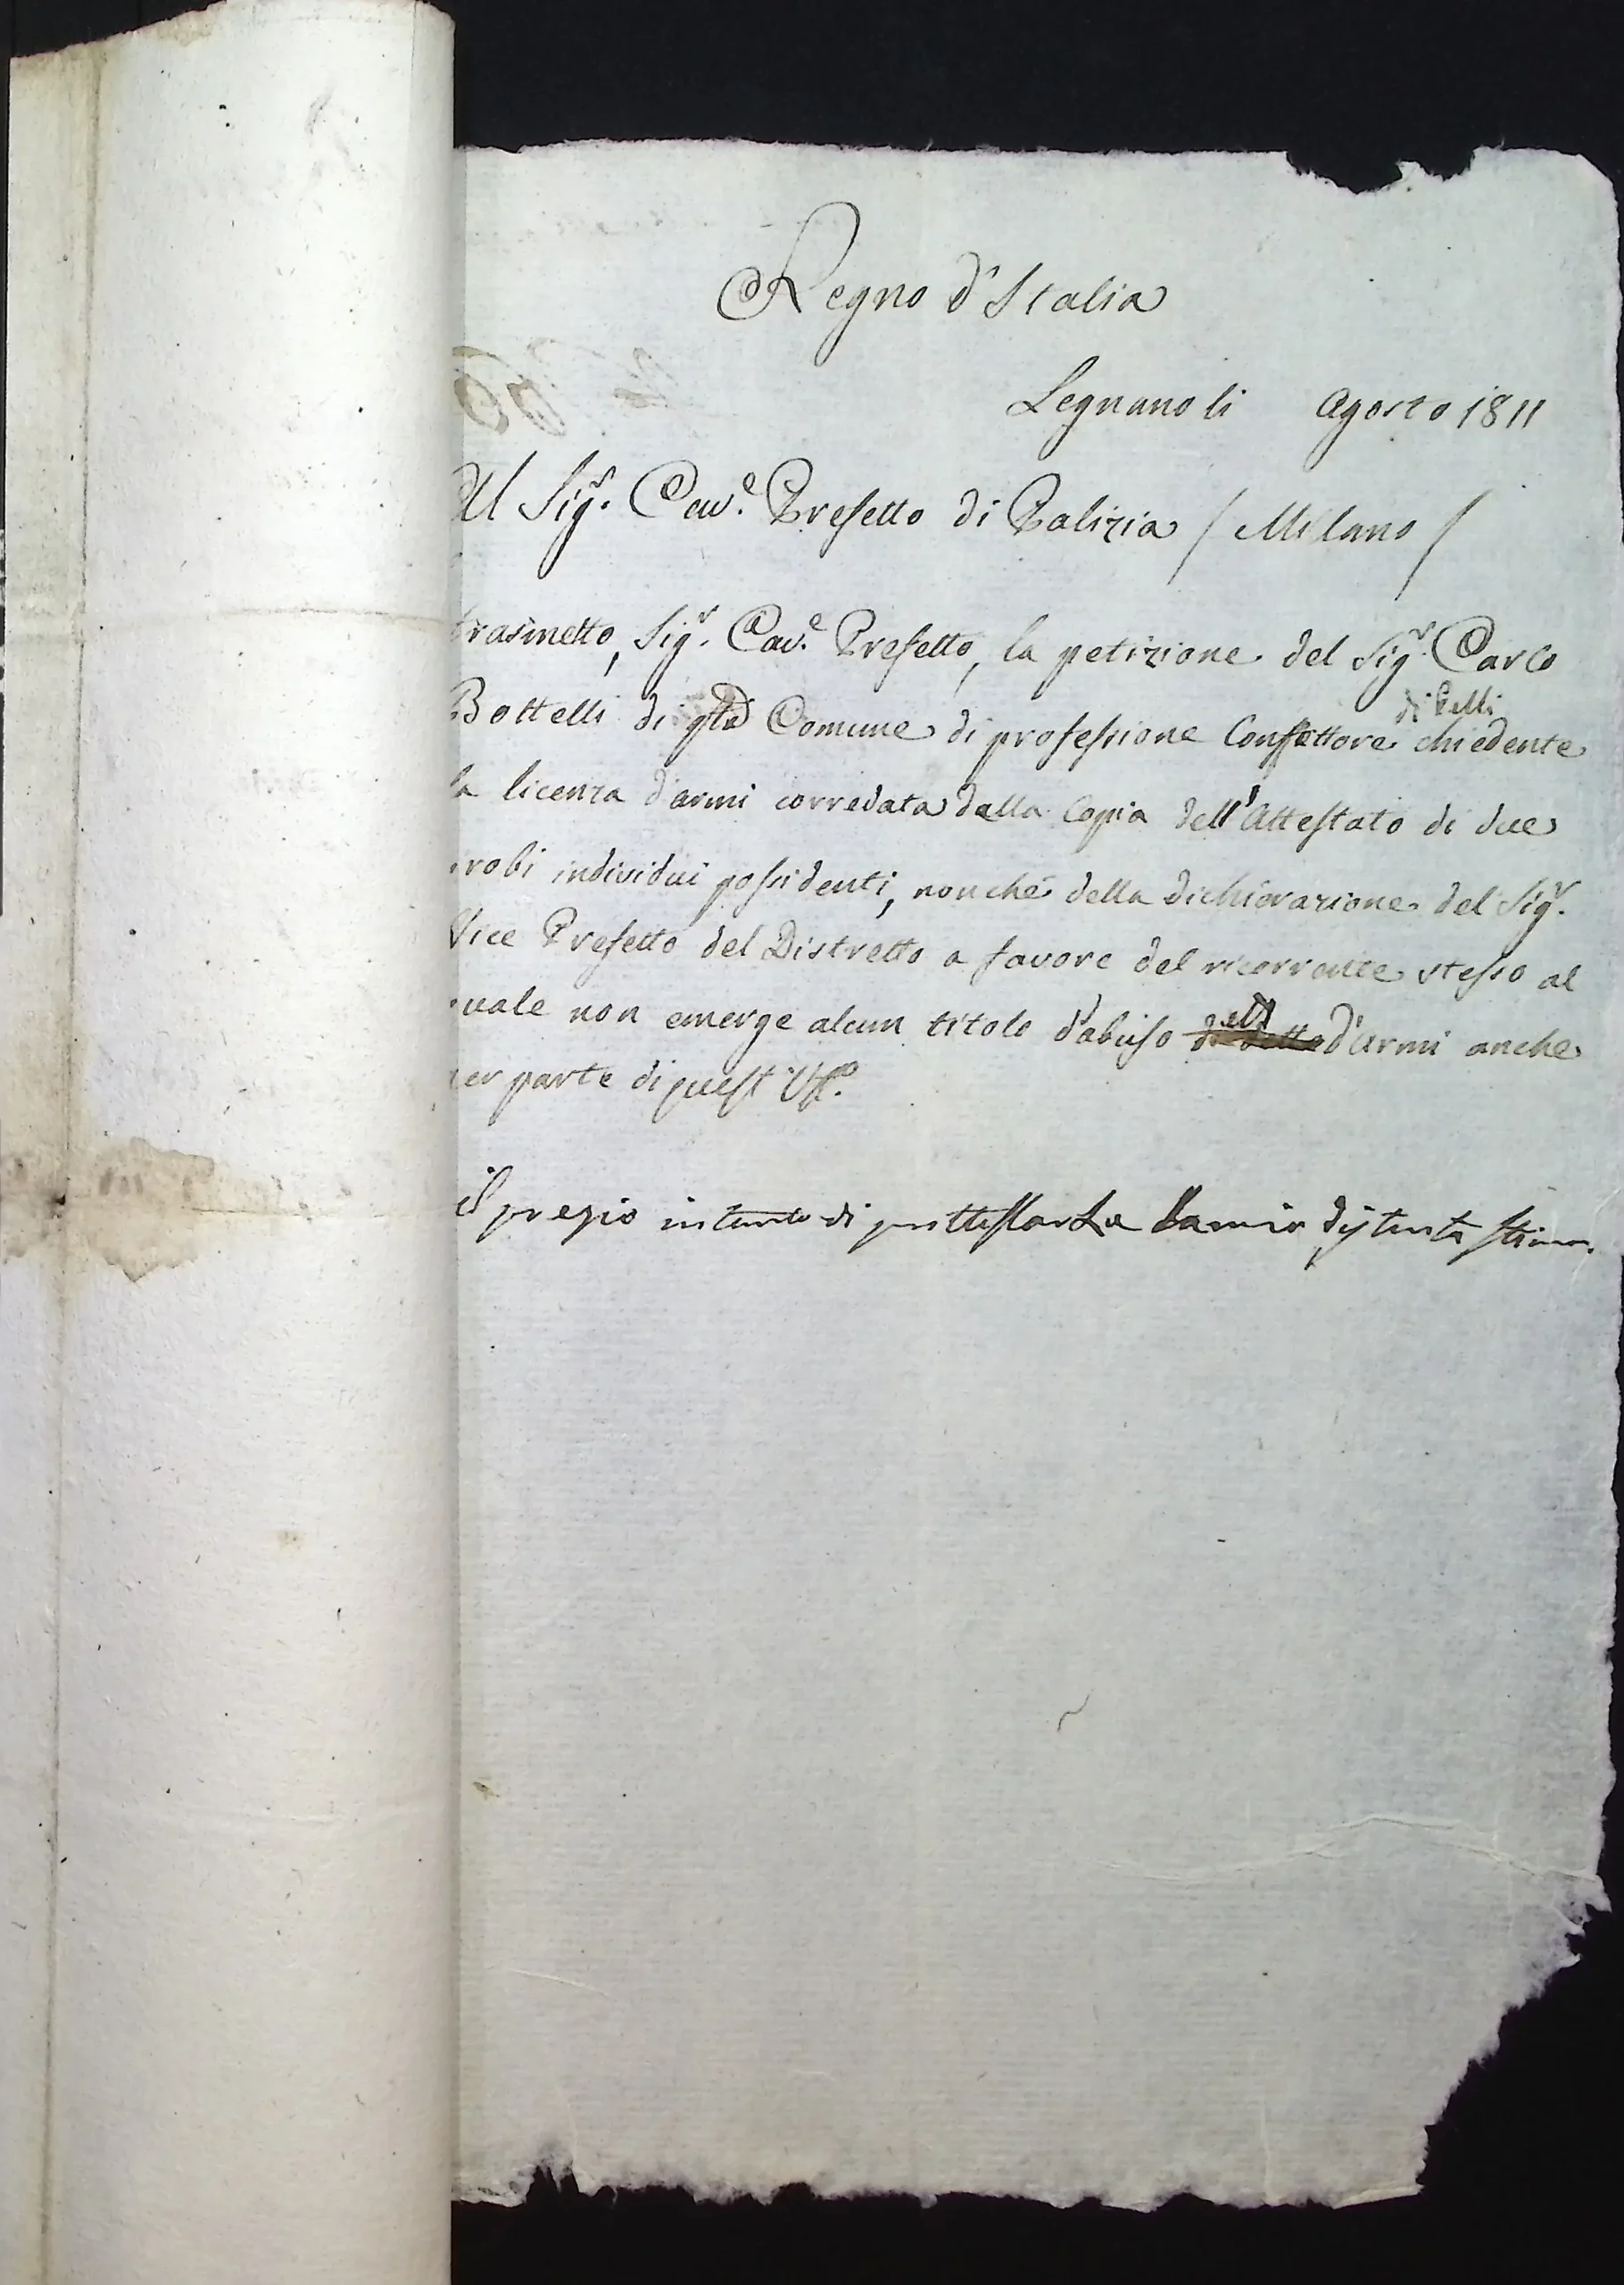 Regno d'Italia
Legnano li Agosto 1811
Al Sigr. Cave. Prefetto di Polizia / Milano /
trasmetto, Sigr. Cave. Prefetto, la petizione del Sigr. Carlo
Bottelli di qto Comune di professione Confettore di Pelli chiedente
la licenza d'armi corredata dalla Copia dell'Attestato di due
robi individui possidenti, nonchè della dichiarazione del Sigr.
Vice Prefetto del Distretto a favore del ricorrente stesso al
uale non emerge alcun titolo d'abuso d'armi anche
er parte di quest'Uffo.
il pregio intanto di protestarLe la mia distinta stima.